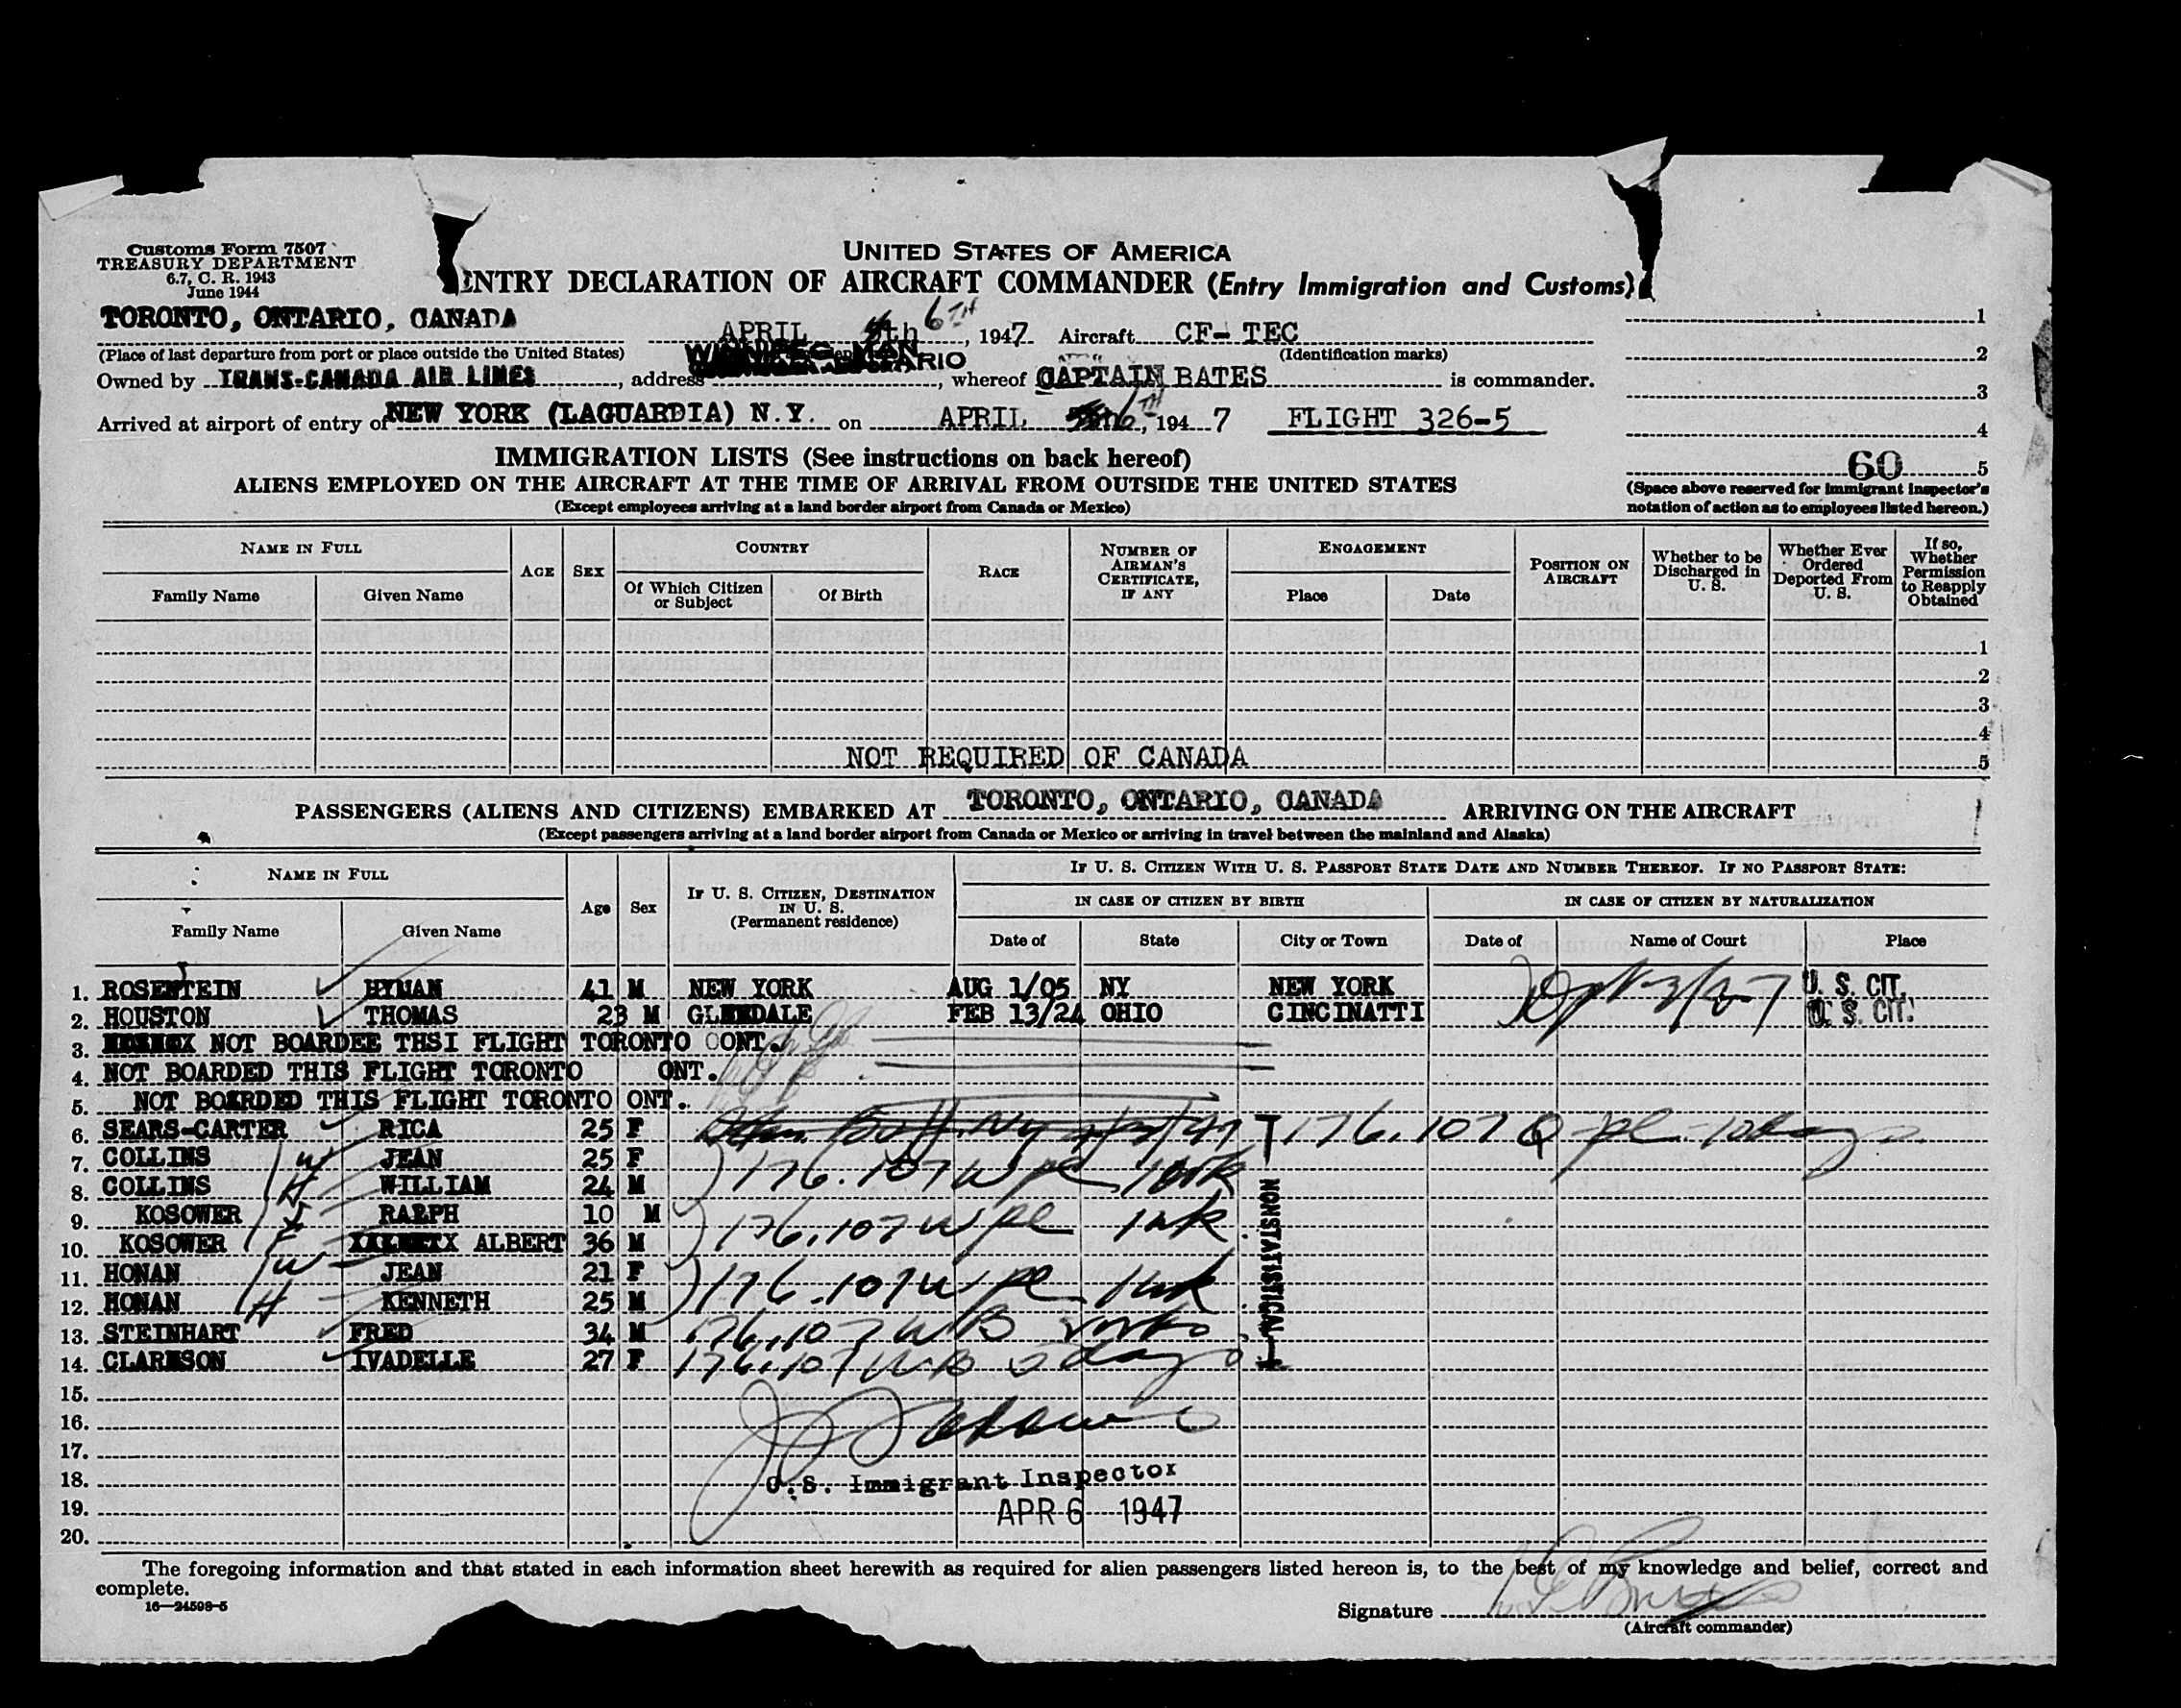 Customs Form 7507
TREASURY DEPARTMENT
6.7, C. R. 1943
June 1944
UNITED STATES OF AMERICA
ENTRY DECLARATION OF AIRCRAFT COMMANDER (Entry Immigration and Customs)
TORONTO, ONTARIO, CANADA
APRIL 6TH, 1947 Aircraft CF-TEC
(Place of last departure from port or place outside the United States)
(Identification marks)
Owned by TRANS-CANADA AIR LINES, address WINNIPEG MAN, whereof CAPTAIN BATES is commander.
Arrived at airport of entry of NEW YORK (LAGUARDIA) N.Y. on APRIL 6TH, 1947 FLIGHT 326-5
1
2
3
4
60 5
(Space above reserved for immigrant inspector's
notation of action as to employees listed hereon.)
IMMIGRATION LISTS (See instructions on back hereof)
ALIENS EMPLOYED ON THE AIRCRAFT AT THE TIME OF ARRIVAL FROM OUTSIDE THE UNITED STATES
(Except employees arriving at a land border airport from Canada or Mexico)
NAME IN FULL
Family Name
Given Name
AGE
SEX
COUNTRY
Of Which Citizen or Subject
Of Birth
RACE
NUMBER OF AIRMAN'S CERTIFICATE, IF ANY
ENGAGEMENT
Place
Date
POSITION ON AIRCRAFT
Whether to be Discharged in U. S.
Whether Ever Ordered Deported From U. S.
If so, Whether Permission to Reapply Obtained
1
2
3
4
NOT REQUIRED OF CANADA 5
PASSENGERS (ALIENS AND CITIZENS) EMBARKED AT TORONTO, ONTARIO, CANADA ARRIVING ON THE AIRCRAFT
(Except passengers arriving at a land border airport from Canada or Mexico or arriving in travel between the mainland and Alaska)
NAME IN FULL
Family Name
Given Name
Age
Sex
IF U. S. CITIZEN, DESTINATION IN U. S. (Permanent residence)
IF U. S. CITIZEN WITH U. S. PASSPORT STATE DATE AND NUMBER THEREOF. IF NO PASSPORT STATE:
IN CASE OF CITIZEN BY BIRTH
IN CASE OF CITIZEN BY NATURALIZATION
Date of
State
City or Town
Date of
Name of Court
Place
1. ROSENTEIN HYMAN 41 M NEW YORK AUG 1/05 NY NEW YORK U. S. CIT.
2. HOUSTON THOMAS 23 M GLENDALE FEB 13/24 OHIO CINCINATTI U. S. CIT.
3. NOT BOARDEE THSI FLIGHT TORONTO ONT.
4. NOT BOARDED THIS FLIGHT TORONTO ONT.
5. NOT BOARDED THIS FLIGHT TORONTO ONT.
6. SEARS-CARTER RICA 25 F 176.107 Q
7. COLLINS W JEAN 25 F
8. COLLINS H WILLIAM 24 M 176.107 W
9. KOSOWER RALPH 10 M
10. KOSOWER F ALBERT 36 M 176.107 W
11. HONAN W JEAN 21 F
12. HONAN H KENNETH 25 M 176.107 W
13. STEINHART FRED 34 M 176.107 WB
14. CLARKSON IVADELLE 27 F 176.107 WB days
NONSTATISTICAL
15.
16.
17.
18.
19.
20.
U.S. Immigrant Inspector
APR 6 1947
The foregoing information and that stated in each information sheet herewith as required for alien passengers listed hereon is, to the best of my knowledge and belief, correct and
complete.
16—24598-5
Signature
(Aircraft commander)